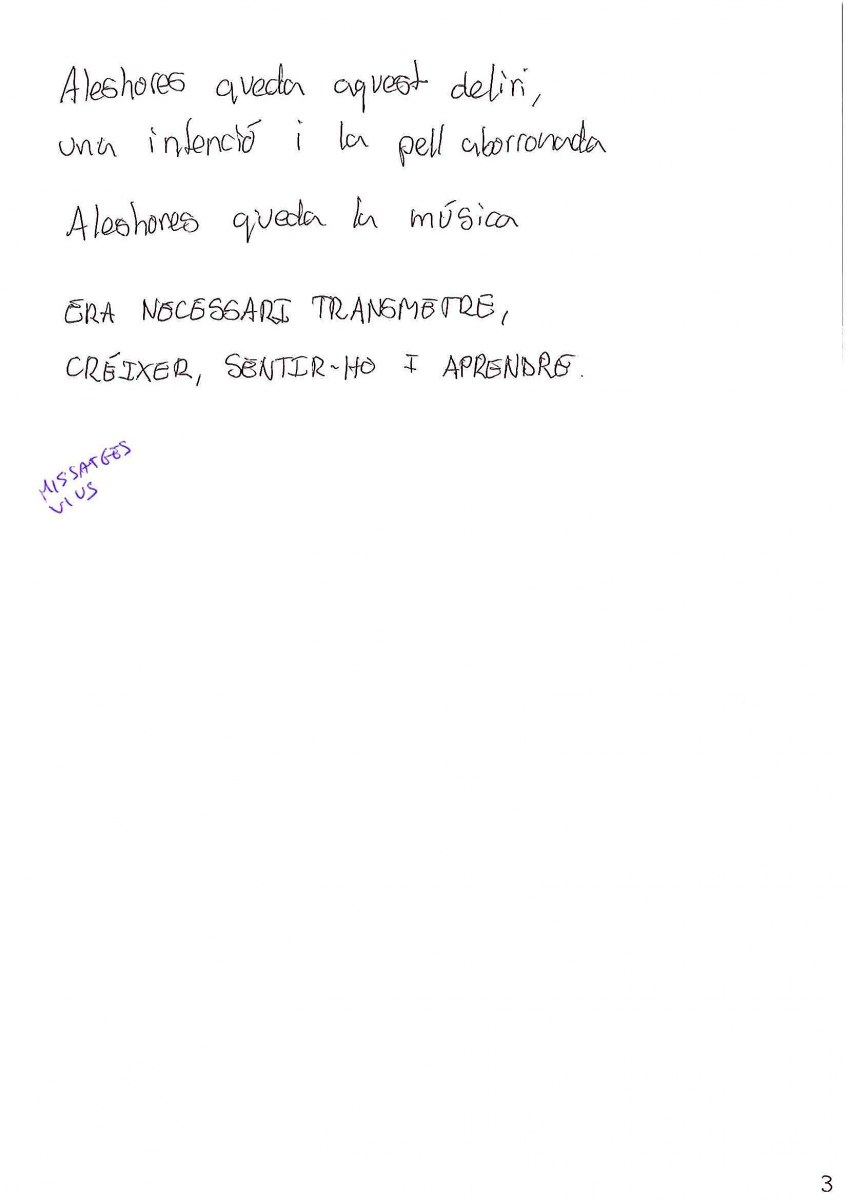 Aleshores queda aquest deliri,
una intenció i la pell aborronada
Aleshores queda la música
ERA NECESSARI TRANSMETRE,
CRÉIXER, SENTIR-HO I APRENDRE.
MISSATGES
VIUS
3